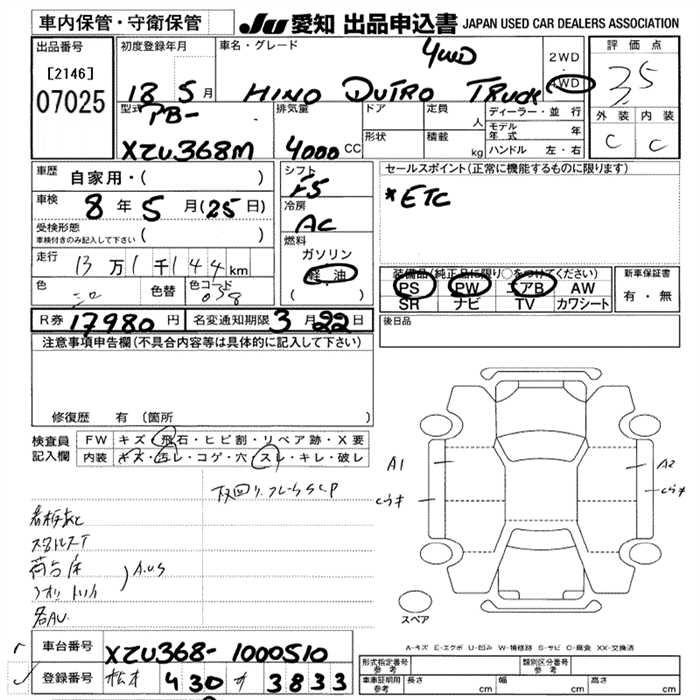 車内保管・守衛保管
JU 愛知 出品申込書 JAPAN USED CAR DEALERS ASSOCIATION
出品番号
[2146]
07025
初度登録年月
13 5 月
車名・グレード
4WD
HINO DUTRO TRUCK
2WD
・
4WD
評価点
3.5
外装 内装
C C
型式
PB-
XZU368M
排気量
4000 CC
ドア
形状
定員
人
積載
kg
ディーラー・並行
モデル年式 年
ハンドル 左・右
車歴
自家用・( )
車検
8 年 5 月 (25 日)
受検形態
車検付きのみ記入して下さい ( )
走行
13 万 1 千 1 4 4 km
色
シロ
色替
色コード
058
シフト
F5
冷房
AC
燃料
ガソリン
軽油
( )
セールスポイント(正常に機能するものに限ります)
*ETC
装備品(純正品に限り○をつけてください)
PS PW エアB AW
SR ナビ TV カワシート
新車保証書
有・無
後日品
R券 17980 円
名変通知期限 3 月 22 日
注意事項申告欄(不具合内容等は具体的に記入して下さい)
修復歴 有 (箇所
検査員記入欄
FW キズ・飛石・ヒビ割・リペア跡・X要
内装 キズ・汚レ・コゲ・穴・スレ・キレ・破レ
下回リ、フレームSCP
荷台床
A.US
A1
A2
スペア
A-キズ E-エクボ U-凹み W-補修跡 S-サビ C-腐食 XX-交換済
車台番号
XZU368-1000510
登録番号
430 3833
形式指定番号
参考
類別区分番号
参考
車庫証明用
参考
長さ cm
幅 cm
高さ cm